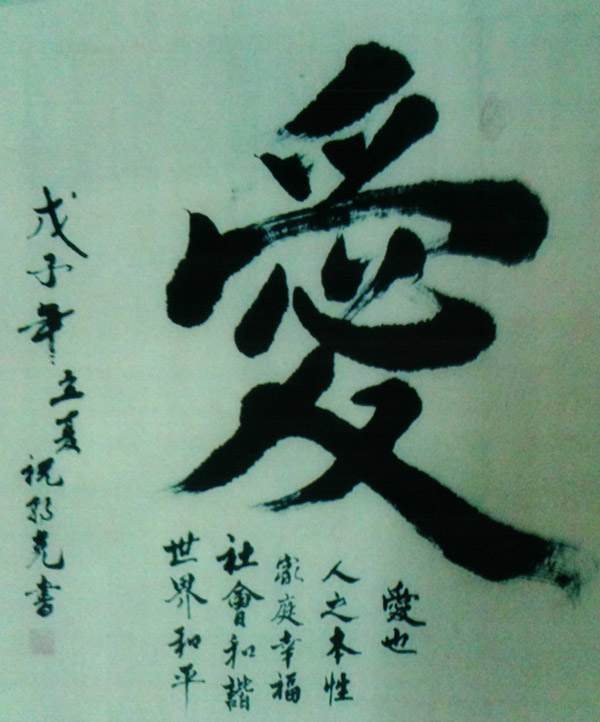 愛
愛也
人之本性
家庭幸福
社會和諧
世界和平
戊子年立夏祝
克書